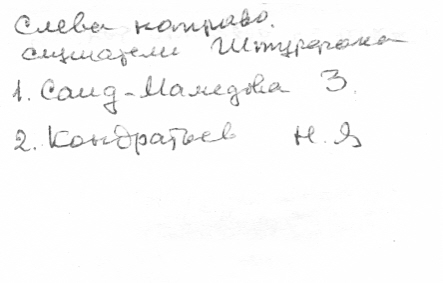 Слева направо.
слушатели Штурфака
1. Саид-Мамедова З.
2. Кондратьев Н. Я